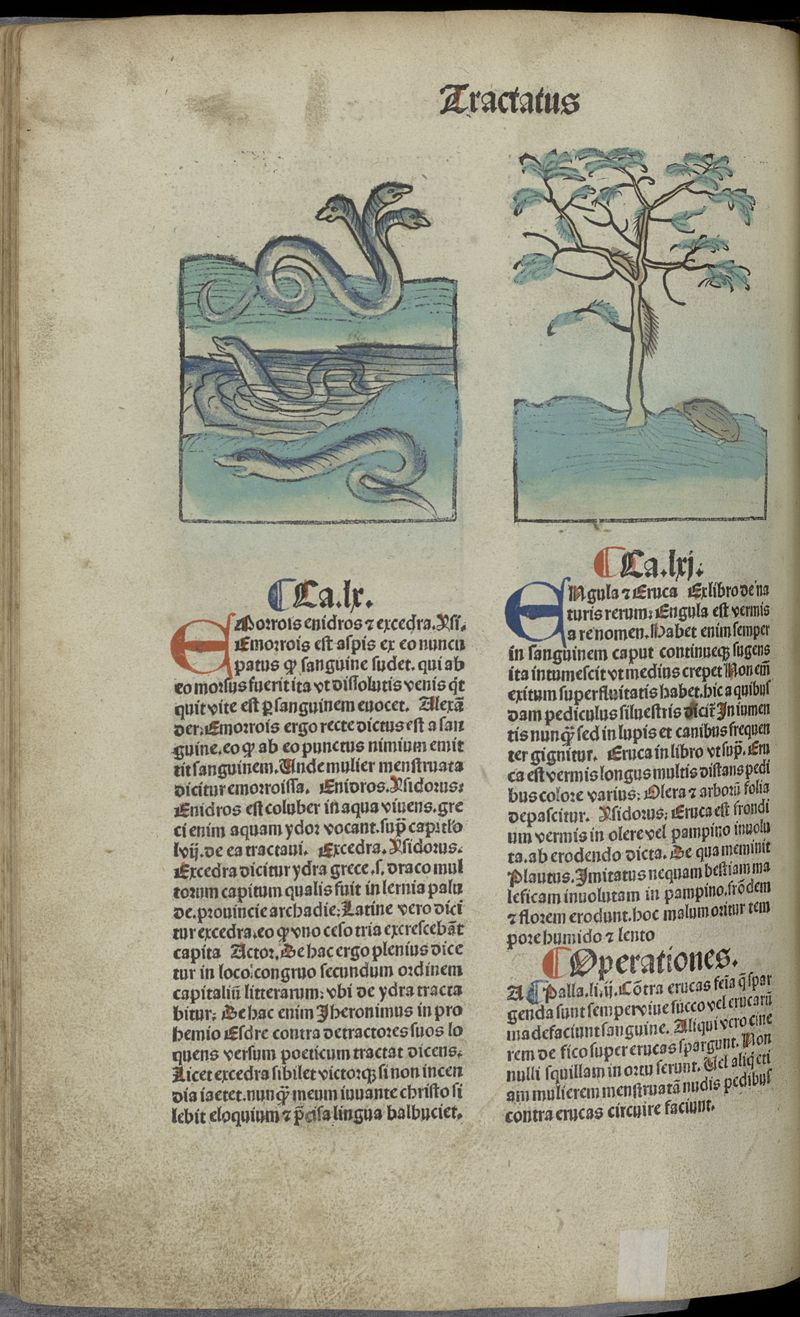 Tractatus
Ca.lx.
EMorrois enidros ⁊ excedra. Ysi.
Emorrois est aspis ex eo nuncu
patus qꝙ sanguine sudet. qui ab
eo morsus fuerit ita vt dissolutis venis qͥt
quit vite est ꝑ sanguinem euocet. Alexā
der: Emorrois ergo recte dictus est a san
guine. eo ꝙ ab eo punctus nimium emit
tit sanguinem. Unde mulier menstruata
dicitur emorroissa. Enidros. Ysidorus:
Enidros est coluber in aqua viuens. gre
ci enim aquam ydor vocant. supͣ capitƚo
lvij. de ea tractaui. Excedra. Ysidorus.
Excedra dicitur ydra grece. s. draco mul
torum capitum qualis fuit in lernia palu
de. prouincie archadie: Latine vero dici
tur excedra. eo ꝙ vno ceso tria excrescebāt
capita Actor. De hac ergo plenius dice
tur in loco congruo secundum ordinem
capitaliū litterarum: vbi de ydra tracta
bitur: De hac enim Jheronimus in pro
hemio Esdre contra detractores suos lo
quens versum poeticum tractat dicens.
Licet excedra sibilet victorqꝫ si non incen
dia iactet. nunqͣ̄ meum iuuante christo si
lebit eloquium ⁊ p̄cisa lingua balbuciet.
Ca.lxj.
ENgula ⁊ Eruca Ex libro de na
turis rerum: Engula est vermis
a re nomen. Habet enim semper
in sanguinem caput continueqꝫ sugens
ita intumescit vt medius crepet Non em̄
exitum superfluitatis habet. hic a quibus
dam pediculus siluestris dicit̄ In iumen
tis nunqͣ̄ sed in lupis et canibus frequen
ter gignitur. Eruca in libro vt supͣ. Eru
ca est vermis longus multis distans pedi
bus colore varius: Olera ⁊ arborū folia
depascitur. Ysidorus: Eruca est frondi
um vermis in olere vel pampino inuolu
ta. ab erodendo dicta. De qua meminit
Plautus. Imitatus nequam bestiam ma
leficam inuolutam in pampino. frōdem
⁊ florem erodunt. hoc malum oritur tem
pore humido ⁊ lento
Operationes.
A Palla. li. ij. Cōtra erucas seīa q̄ spar
genda sunt semperuiue succo vel erucarū
madefaciunt sanguine. Aliqui vero cine
rem de fico super erucas spargunt. Non
nulli squillam in ortu serunt. Vel aliq̄ eti
am mulierem menstruatā nudis pedibus
contra erucas circuire faciunt.